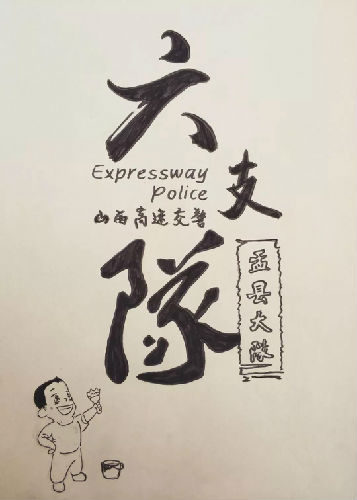 六
支
Expressway
Police
山西高速交警
隊
盂县大隊